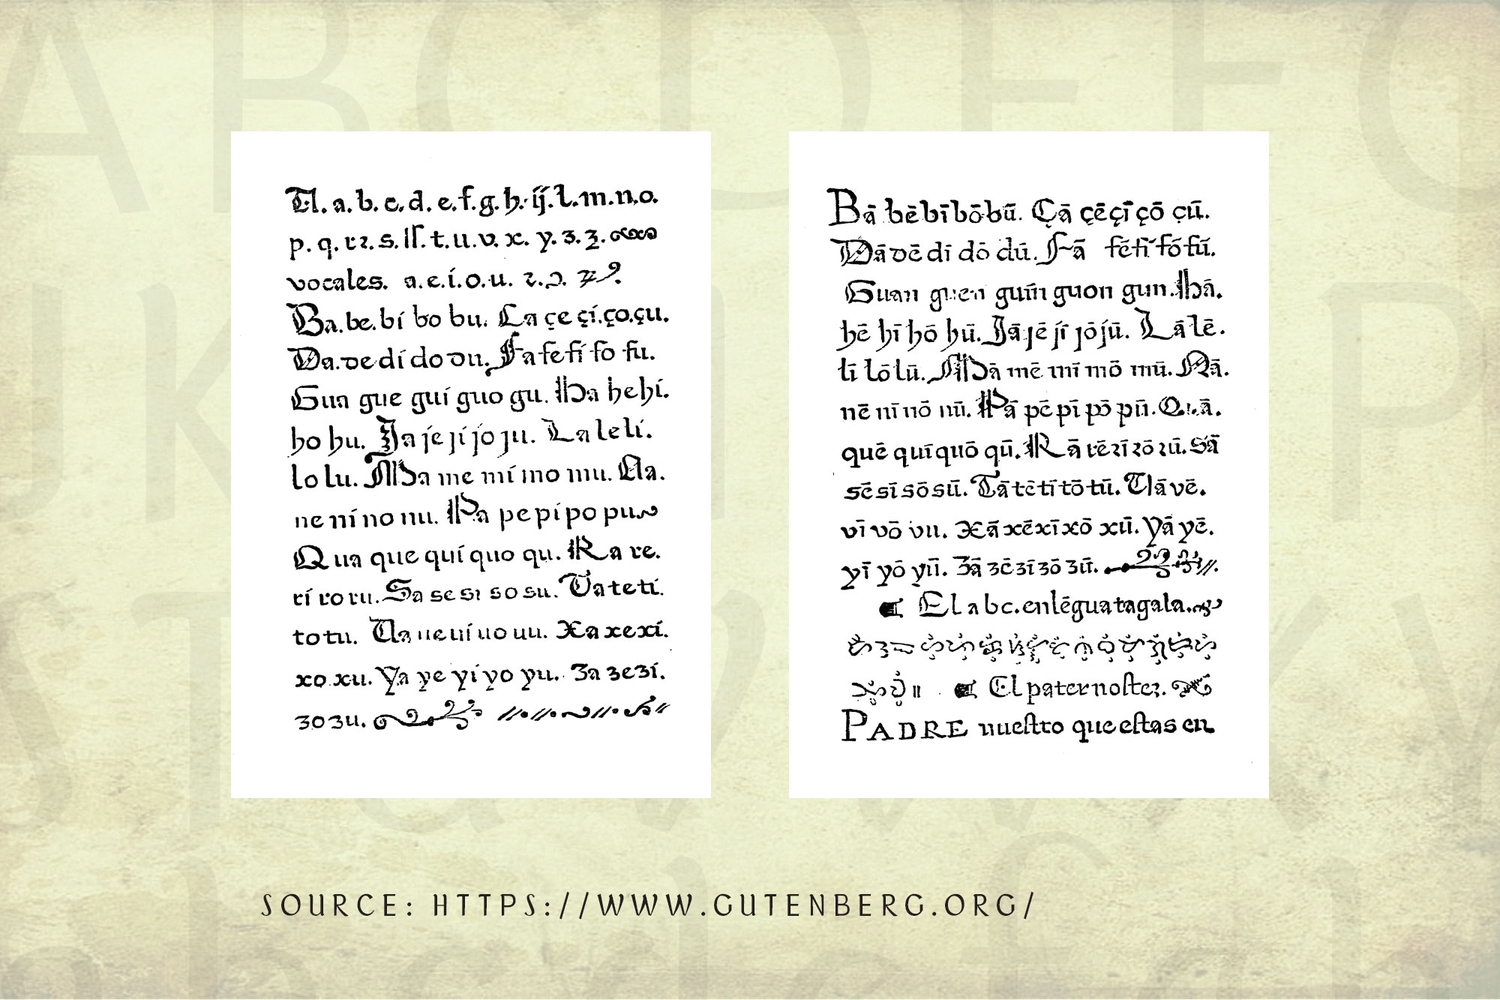 A. a. b. c. d. e. f. g. h. ij. l. m. n. o.
p. q. r ꝛ. s. ſſ. t. u. v. x. y. z. ʒ.
vocales. a. e. i. o. u.
Ba. be. bi bo bu. Ca çe çi. ço. çu.
Da. de di do du. Fa fe fi fo fu.
Gua gue gui guo gu. Ha he hi.
ho hu. Ja je ji jo ju. La le li.
lo lu. Ma me mi mo mu. Na.
ne ni no nu. Pa pe pi po pu
Qua que qui quo qu. Ra re.
ri ro ru. Sa se si so su. Ta te ti.
to tu. Ua ue ui uo uu. Xa xe xi.
xo xu. Ya ye yi yo yu. Za ze zi.
zo zu.
Bā bē bī bō bū. Çā çē çī çō çū.
Dā dē dī dō dū. Fā fē fī fō fū.
Guan guen guin guon gun. Hā.
hē hī hō hū. Jā jē jī jō jū. Lā lē.
lī lō lū. Mā mē mī mō mū. Nā.
nē nī nō nū. Pā pē pī pō pū. Quā.
quē quī quō qū. Rā rē rī rō rū. Sā
sē sī sō sū. Tā tē tī tō tū. Uā vē.
vī vō vu. Xā xē xī xō xū. Yā yē.
yī yō yū. Zā zē zī zō zū.
El a b c. en lēgua tagala.
El pater noſter.
PADRE nueſtro que eſtas en
SOURCE: HTTPS://WWW.GUTENBERG.ORG/